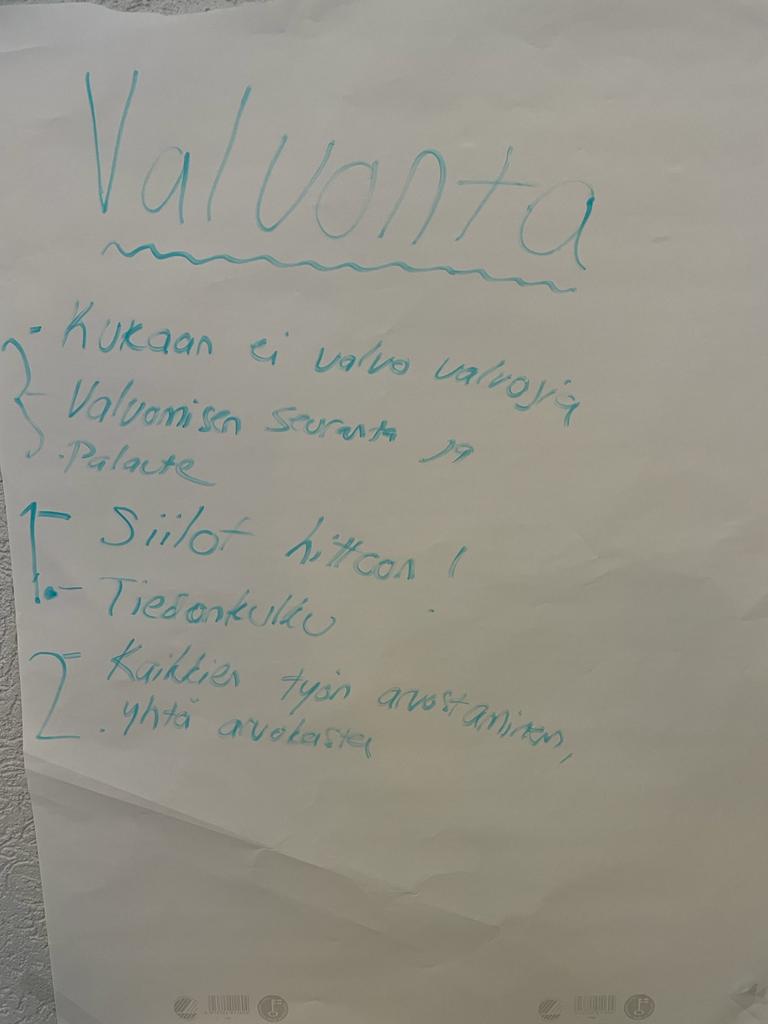 Valvonta
- Kukaan ei valvo valvojia
Valvomisen seuranta ja
- Palaute
- Siilot hittoon!
- Tiedonkulku
Kaikkien työn arvostaminen,
yhtä arvokasta